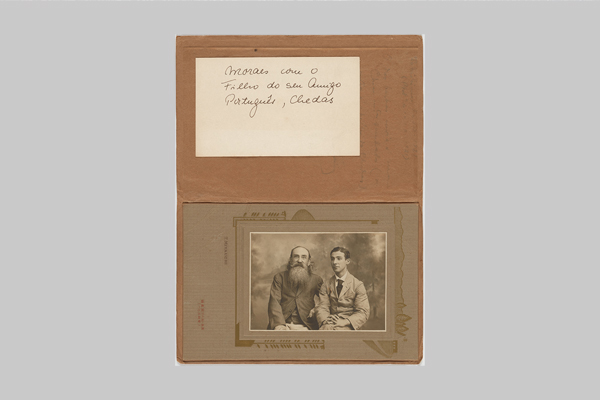 Moraes com o
Filho do seu Amigo
Português, Chedas